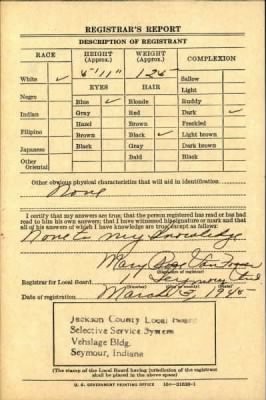 REGISTRAR'S REPORT
DESCRIPTION OF REGISTRANT
RACE HEIGHT (Approx.) WEIGHT (Approx.) COMPLEXION
White ✓ 5' 11" 125 Sallow
EYES HAIR Light
Negro Blue ✓ Blonde Ruddy
Indian Gray Red Dark ✓
Filipino Hazel Brown Freckled
Japanese Brown Black ✓ Light brown
Other Oriental Black Gray Dark brown
Bald Black
Other obvious physical characteristics that will aid in identification
None
I certify that my answers are true; that the person registered has read or has had
read to him his own answers; that I have witnessed his signature or mark and that
all of his answers of which I have knowledge are true, except as follows:
None to my knowledge
Mary
(Signature of registrar)
Registrar for Local Board Seymour Ind
Date of registration March 1940
Jackson County Local Board
Selective Service System
Vehslage Bldg.
Seymour, Indiana
(The stamp of the Local Board having jurisdiction of the registrant
shall be placed in the above space)
U. S. GOVERNMENT PRINTING OFFICE 16—21630-1